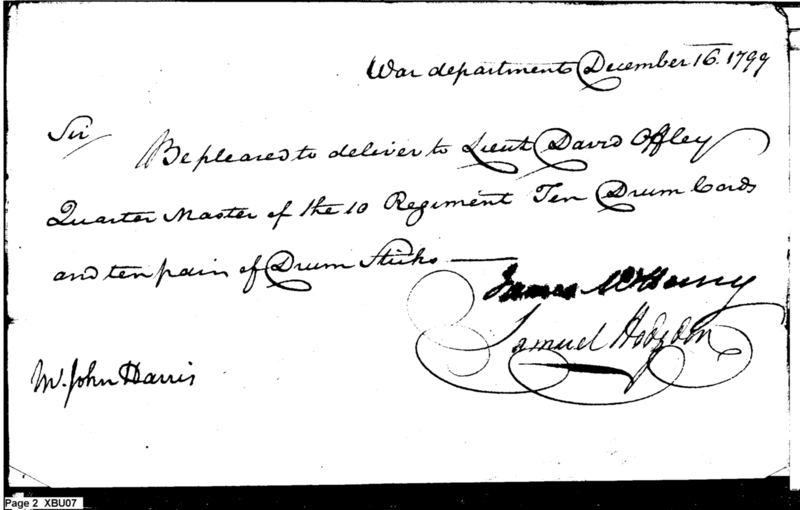 War department December 16. 1799
Sir
Be pleased to deliver to Lieut David Offley
Quarter Master of the 10 Regiment Ten Drum Cords
and ten pair of Drum Sticks
James McHenry
Samuel Hodgdon
Mr. John Harris
Page 2 XBU07